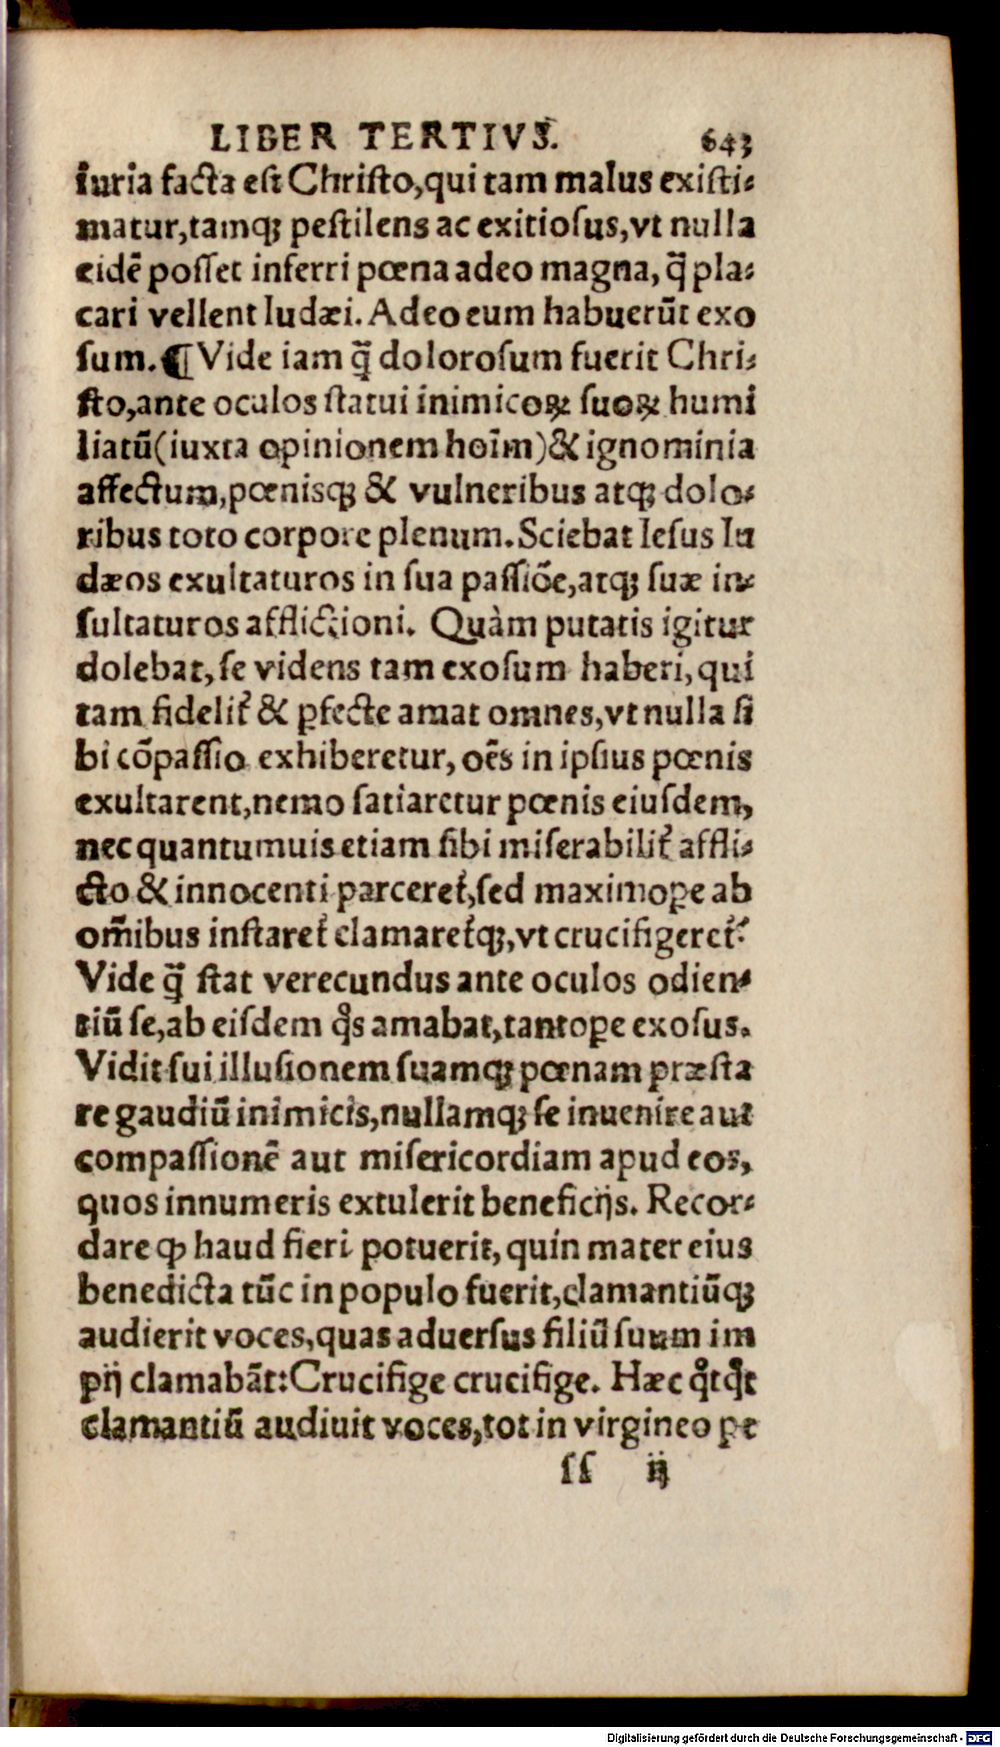 LIBER TERTIVS. 643
iuria facta est Christo, qui tam malus existi-
matur, tamq; pestilens ac exitiosus, vt nulla
eidē posset inferri pœna adeo magna, q̃ pla-
cari vellent Iudæi. Adeo eum habuerūt exo
sum. ¶ Vide iam q̃ dolorosum fuerit Chri-
sto, ante oculos statui inimicoꝝ suoꝝ humi
liatū (iuxta opinionem hoīm) & ignominia
affectum, pœnisq; & vulneribus atq; dolo-
ribus toto corpore plenum. Sciebat Iesus Iu
dæos exultaturos in sua passiōe, atq; suæ in-
sultaturos afflictioni. Quàm putatis igitur
dolebat, se videns tam exosum haberi, qui
tam fidelit᷑ & ꝑfecte amat omnes, vt nulla si
bi cōpassio exhiberetur, oēs in ipsius pœnis
exultarent, nemo satiaretur pœnis eiusdem,
nec quantumuis etiam sibi miserabilit᷑ affli-
cto & innocenti parceret᷑, sed maximoꝑe ab
om̄ibus instaret᷑ clamaret᷑q;, vt crucifigeret᷑.
Vide q̃ stat verecundus ante oculos odien-
tiū se, ab eisdem qͦs amabat, tantoꝑe exosus.
Vidit sui illusionem suamq; pœnam præsta
re gaudiū inimicis, nullamq; se inuenire aut
compassionē aut misericordiam apud eos,
quos innumeris extulerit beneficijs. Recor-
dare ꝙ haud fieri potuerit, quin mater eius
benedicta tūc in populo fuerit, clamantiūq;
audierit voces, quas aduersus filiū suum im
pij clamabāt: Crucifige crucifige. Hæc qͦtqͦt
clamantiū audiuit voces, tot in virgineo pe
ſſ ij
Digitalisierung gefördert durch die Deutsche Forschungsgemeinschaft - DFG